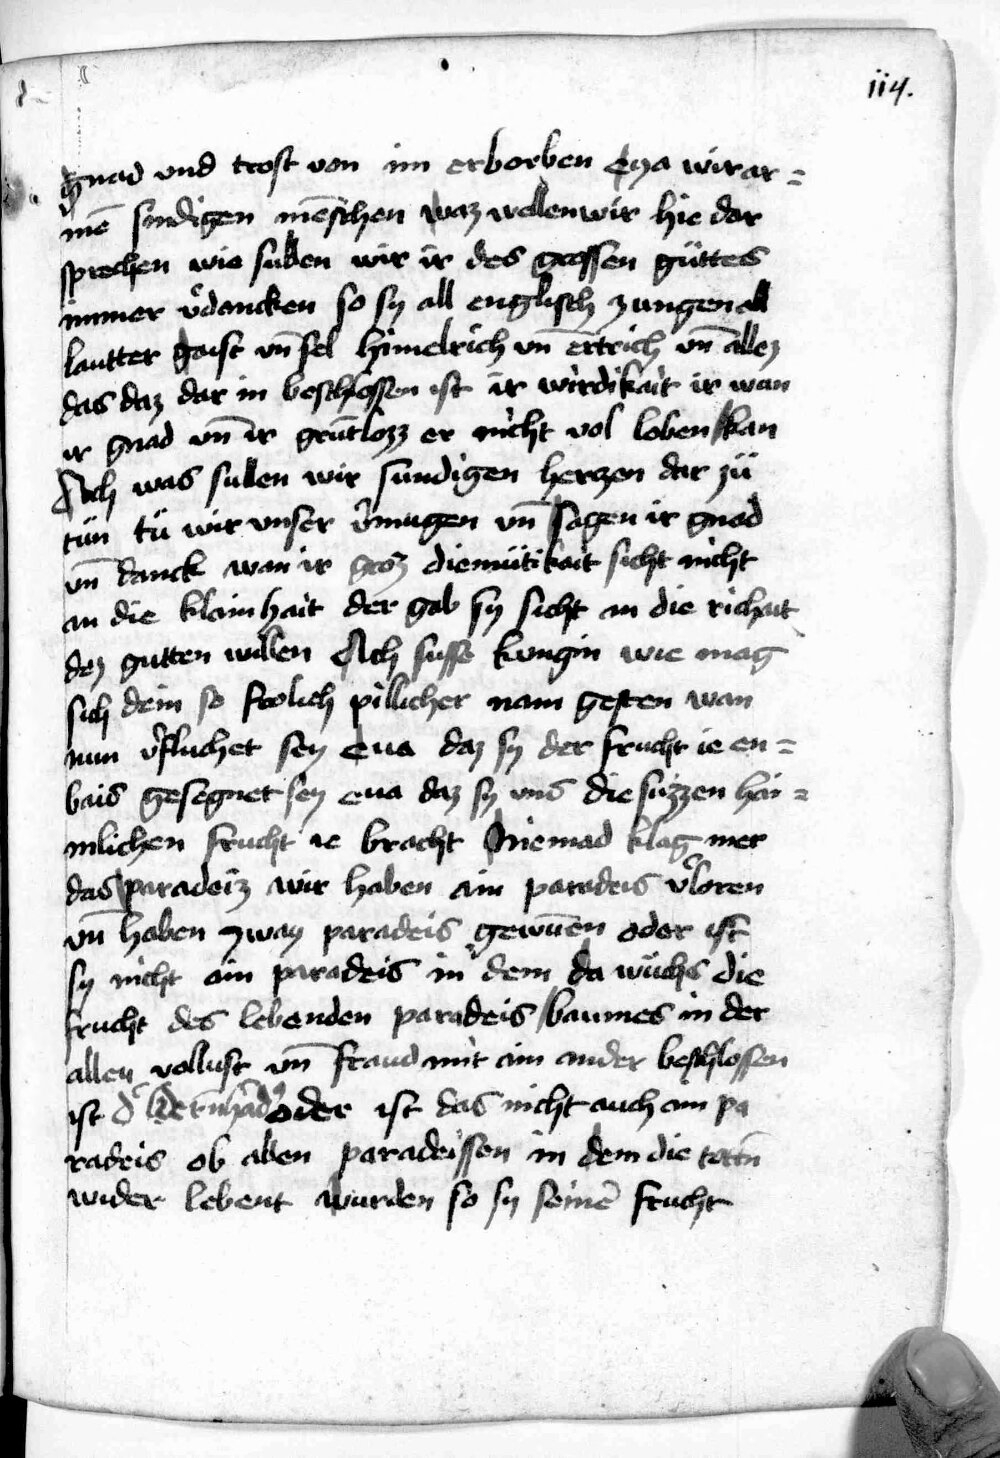 114.
gnad vnd trost von im erborben Eya wir ar=
mē sindigen mēschen waz wellen wir hie dar
sprechen wie sullen wir ir des grossen güttes
immer v̓dancken so sy all englisch zungen all
lautter gaist vn̄ sel himelrich vn̄ ertrich vn̄ allez
das daz dar in beschlossen ist ir wirdikait ir wan
ir gnad vn̄ ir grūtlozz er nicht vol loben kan
Ach was sullen wir sundigen herczen dar zü
tün tü wir vnser v̓mugen vn̄ sagen ir gnad
vn̄ danck wan ir groz diemütikait sicht nicht
an die klainhait der gab sy sicht an die richait
dez gutten willen Ach susse kungin wie mag
sich dein so frolich pillicher nam gesten wan
nun v̓fluchet sey eua daz sy der frucht ie en=
bais gesegnet sey eua daz sy vns die suzzen hai=
mlichen frucht ie bracht Niemad klag mer
das paradeiz wir haben ain paradeis v̓loren
vn̄ haben zway paradeis gewūen oder ist
sy nicht ain paradeis in dem da wüchs die
frucht des lebenden paradeis baumes in der
allen vollust vn̄ fraud mit ain ander beschlossen
ist oder ist das nicht auch ain pa
radeis ob allen paradeissen in dem die tottn̄
wider lebent wurden so sy seinē frucht